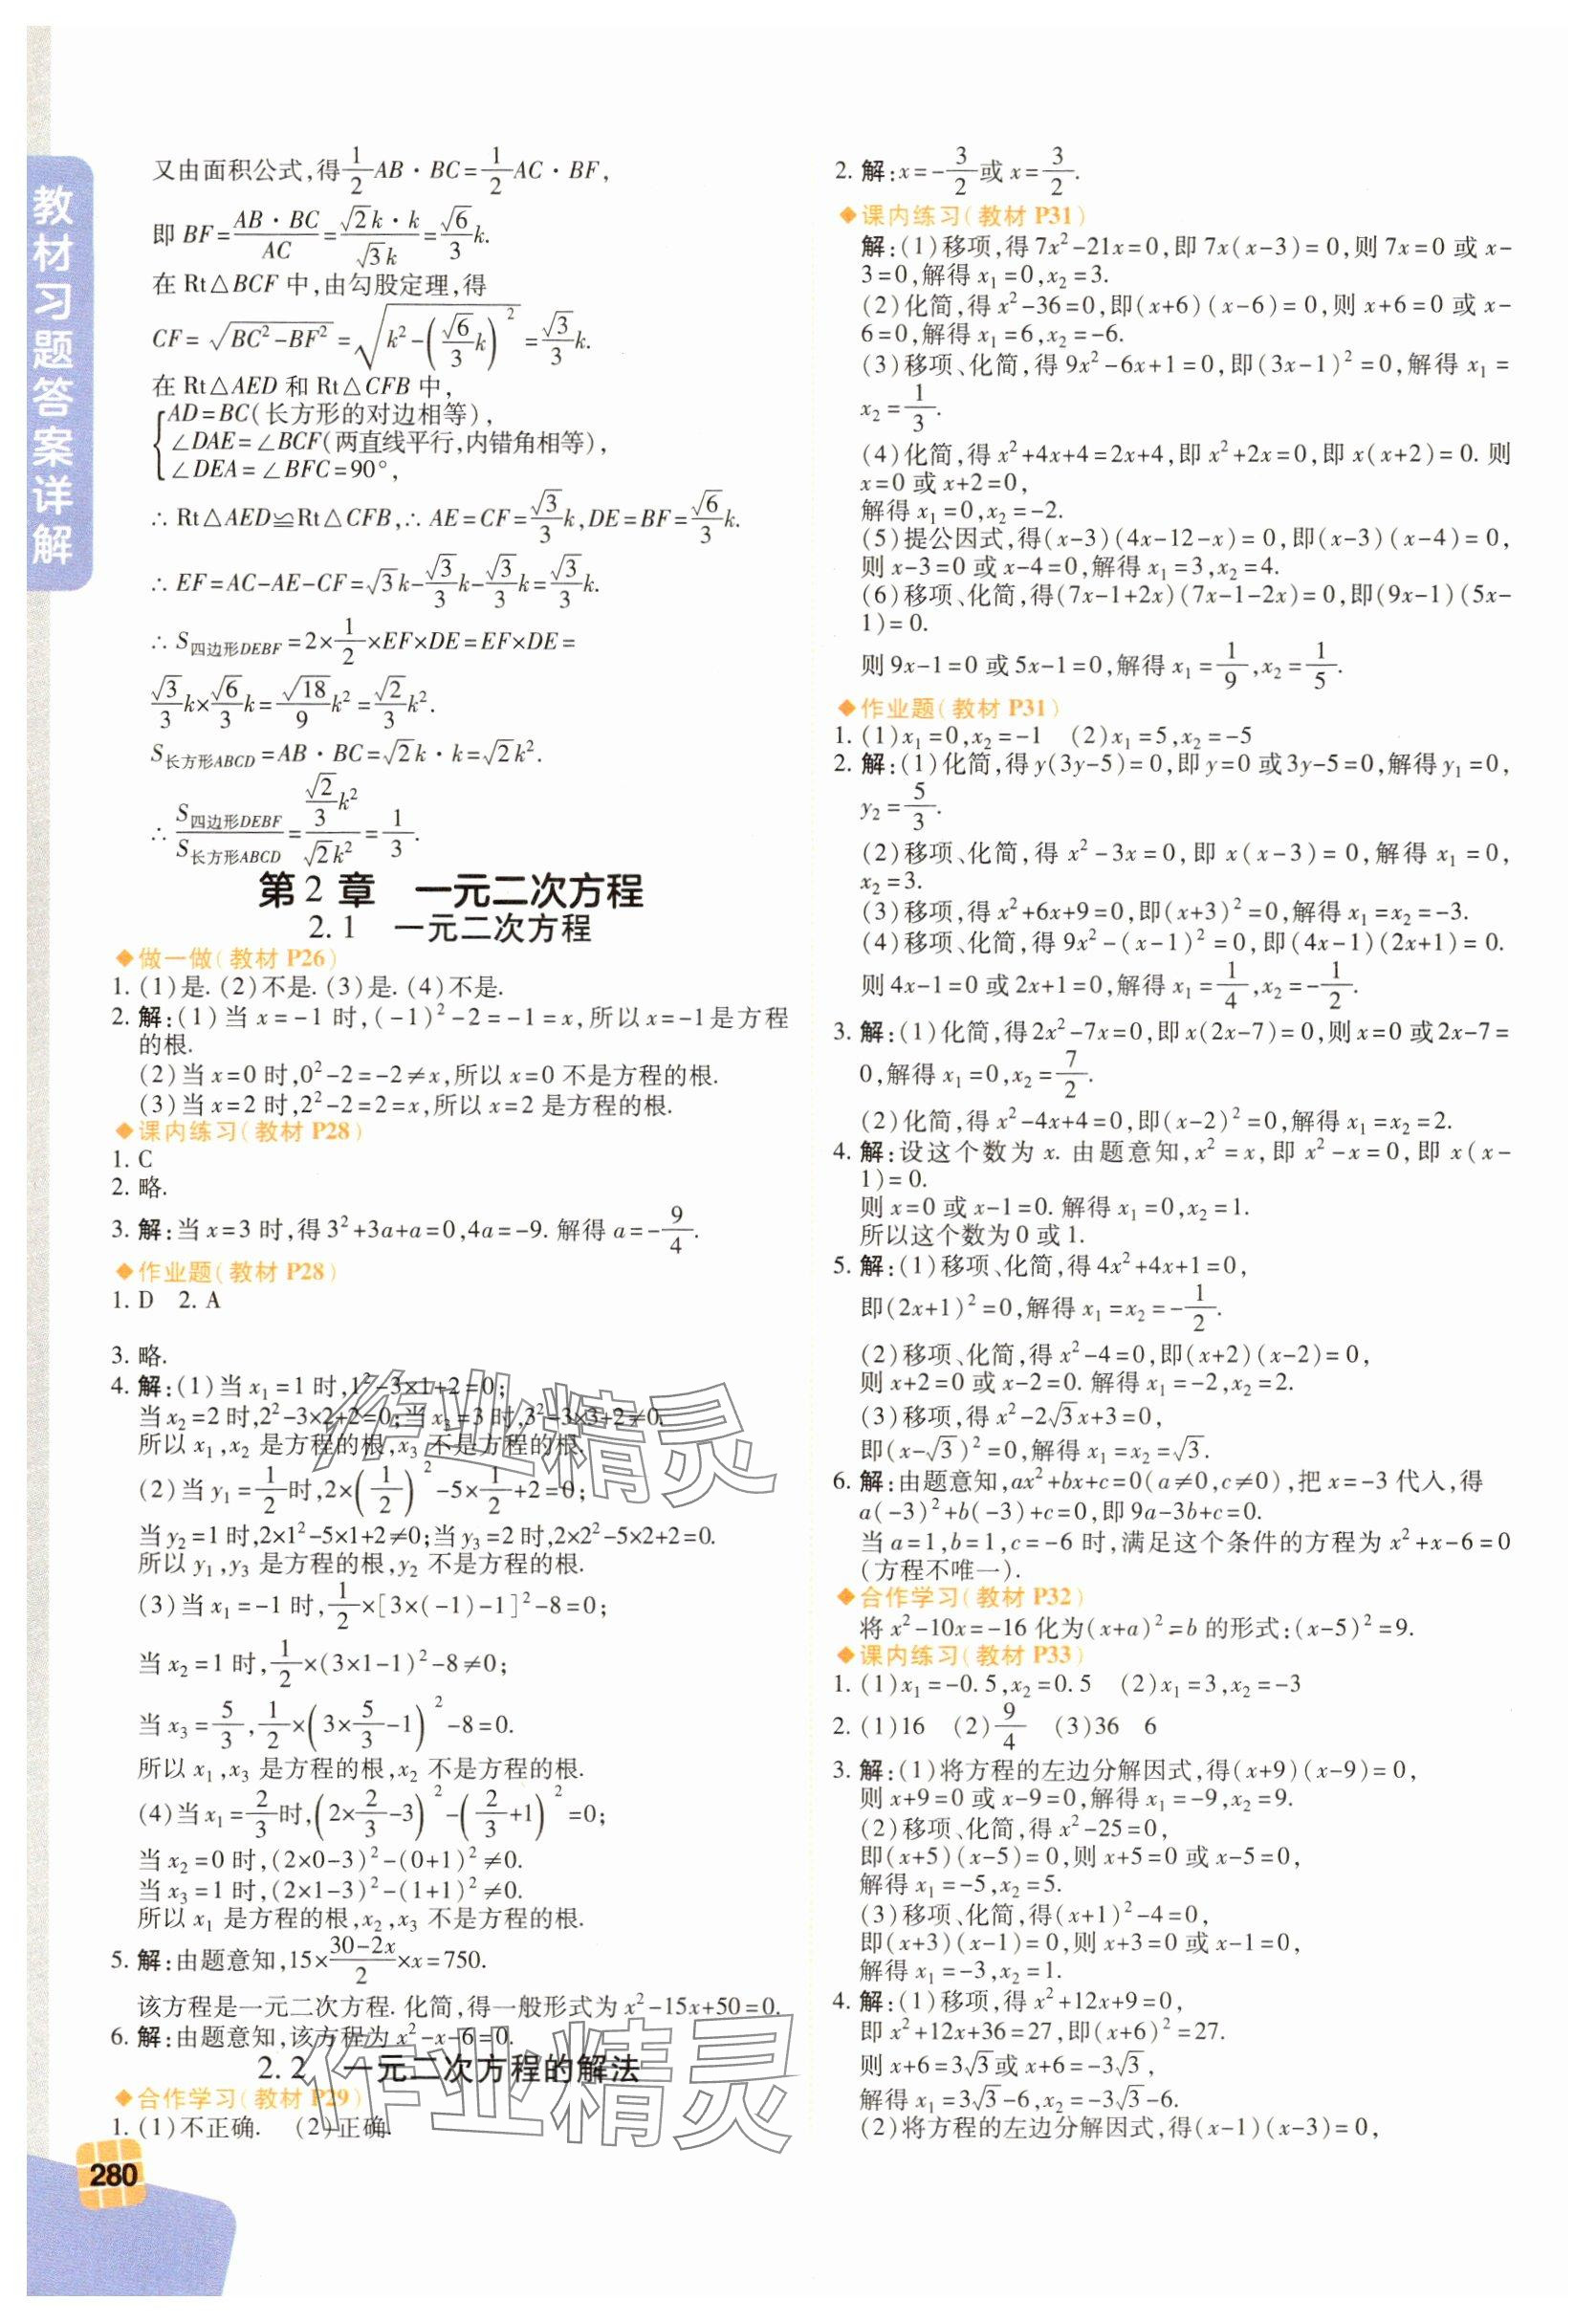 教材习题答案详解
又由面积公式,得$\frac{1}{2}$AB·BC=$\frac{1}{2}$AC·BF,
即 BF=$\frac{AB·BC}{AC}$=$\frac{\sqrt{2}k·k}{\sqrt{3}k}$=$\frac{\sqrt{6}}{3}$k.
在 Rt△BCF 中,由勾股定理,得
CF=$\sqrt{BC^2-BF^2}$=$\sqrt{k^2-(\frac{\sqrt{6}}{3}k)^2}$=$\frac{\sqrt{3}}{3}$k.
在 Rt△AED 和 Rt△CFB 中,
AD=BC(长方形的对边相等),
∠DAE=∠BCF(两直线平行,内错角相等),
∠DEA=∠BFC=90°,
∴ Rt△AED≌Rt△CFB,∴ AE=CF=$\frac{\sqrt{3}}{3}$k,DE=BF=$\frac{\sqrt{6}}{3}$k.
∴ EF=AC-AE-CF=√3k-$\frac{\sqrt{3}}{3}$k-$\frac{\sqrt{3}}{3}$k=$\frac{\sqrt{3}}{3}$k.
∴ S四边形DEBF=2×$\frac{1}{2}$×EF×DE=EF×DE=
$\frac{\sqrt{3}}{3}$k×$\frac{\sqrt{6}}{3}$k=$\frac{\sqrt{18}}{9}$k²=$\frac{\sqrt{2}}{3}$k².
S长方形ABCD=AB·BC=√2k·k=√2k².
∴ $\frac{S四边形DEBF}{S长方形ABCD}$=$\frac{\frac{\sqrt{2}}{3}k^2}{\sqrt{2}k^2}$=$\frac{1}{3}$.
第2章 一元二次方程
2.1 一元二次方程
◆做一做(教材 P26)
1. (1)是. (2)不是. (3)是. (4)不是.
2. 解:(1)当 x=-1 时,(-1)²-2=-1=x,所以 x=-1 是方程
的根.
(2)当 x=0 时,0²-2=-2≠x,所以 x=0 不是方程的根.
(3)当 x=2 时,2²-2=2=x,所以 x=2 是方程的根.
◆课内练习(教材 P28)
1. C
2. 略.
3. 解:当 x=3 时,得 3²+3a+a=0,4a=-9. 解得 a=-$\frac{9}{4}$.
◆作业题(教材 P28)
1. D 2. A
3. 略.
4. 解:(1)当 x₁=1 时,1²-3×1+2=0;
当 x₂=2 时,2²-3×2+2=0;当 x₃=3 时,3²-3×3+2≠0.
所以 x₁,x₂ 是方程的根,x₃ 不是方程的根.
(2)当 y₁=$\frac{1}{2}$时,2×($\frac{1}{2}$)²-5×$\frac{1}{2}$+2=0;
当 y₂=1 时,2×1²-5×1+2≠0;当 y₃=2 时,2×2²-5×2+2=0.
所以 y₁,y₃ 是方程的根,y₂ 不是方程的根.
(3)当 x₁=-1 时,$\frac{1}{2}$×[3×(-1)-1]²-8=0;
当 x₂=1 时,$\frac{1}{2}$×(3×1-1)²-8≠0;
当 x₃=$\frac{5}{3}$,$\frac{1}{2}$×(3×$\frac{5}{3}$-1)²-8=0.
所以 x₁,x₃ 是方程的根,x₂ 不是方程的根.
(4)当 x₁=$\frac{2}{3}$时,(2×$\frac{2}{3}$-3)²-($\frac{2}{3}$+1)²=0;
当 x₂=0 时,(2×0-3)²-(0+1)²≠0.
当 x₃=1 时,(2×1-3)²-(1+1)²≠0.
所以 x₁ 是方程的根,x₂,x₃ 不是方程的根.
5. 解:由题意知,15×$\frac{30-2x}{2}$×x=750.
该方程是一元二次方程. 化简,得一般形式为 x²-15x+50=0.
6. 解:由题意知,该方程为 x²-x-6=0.
2.2 一元二次方程的解法
◆合作学习(教材 P29)
1. (1)不正确. (2)正确.
280
2. 解:x=-$\frac{3}{2}$或 x=$\frac{3}{2}$.
◆课内练习(教材 P31)
解:(1)移项,得 7x²-21x=0,即 7x(x-3)=0,则 7x=0 或 x-
3=0,解得 x₁=0,x₂=3.
(2)化简,得 x²-36=0,即(x+6)(x-6)=0,则 x+6=0 或 x-
6=0,解得 x₁=6,x₂=-6.
(3)移项、化简,得 9x²-6x+1=0,即(3x-1)²=0,解得 x₁=
x₂=$\frac{1}{3}$.
(4)化简,得 x²+4x+4=2x+4,即 x²+2x=0,即 x(x+2)=0. 则
x=0 或 x+2=0,
解得 x₁=0,x₂=-2.
(5)提公因式,得(x-3)(4x-12-x)=0,即(x-3)(x-4)=0,
则 x-3=0 或 x-4=0,解得 x₁=3,x₂=4.
(6)移项、化简,得(7x-1+2x)(7x-1-2x)=0,即(9x-1)(5x-
1)=0.
则 9x-1=0 或 5x-1=0,解得 x₁=$\frac{1}{9}$,x₂=$\frac{1}{5}$.
◆作业题(教材 P31)
1. (1)x₁=0,x₂=-1 (2)x₁=5,x₂=-5
2. 解:(1)化简,得 y(3y-5)=0,即 y=0 或 3y-5=0,解得 y₁=0,
y₂=$\frac{5}{3}$.
(2)移项、化简,得 x²-3x=0,即 x(x-3)=0,解得 x₁=0,
x₂=3.
(3)移项,得 x²+6x+9=0,即(x+3)²=0,解得 x₁=x₂=-3.
(4)移项、化简,得 9x²-(x-1)²=0,即(4x-1)(2x+1)=0.
则 4x-1=0 或 2x+1=0,解得 x₁=$\frac{1}{4}$,x₂=-$\frac{1}{2}$.
3. 解:(1)化简,得 2x²-7x=0,即 x(2x-7)=0,则 x=0 或 2x-7=
0,解得 x₁=0,x₂=$\frac{7}{2}$.
(2)化简,得 x²-4x+4=0,即(x-2)²=0,解得 x₁=x₂=2.
4. 解:设这个数为 x. 由题意知,x²=x,即 x²-x=0,即 x(x-
1)=0.
则 x=0 或 x-1=0. 解得 x₁=0,x₂=1.
所以这个数为 0 或 1.
5. 解:(1)移项、化简,得 4x²+4x+1=0,
即(2x+1)²=0,解得 x₁=x₂=-$\frac{1}{2}$.
(2)移项、化简,得 x²-4=0,即(x+2)(x-2)=0,
则 x+2=0 或 x-2=0. 解得 x₁=-2,x₂=2.
(3)移项,得 x²-2√3x+3=0,
即(x-√3)²=0,解得 x₁=x₂=√3.
6. 解:由题意知,ax²+bx+c=0(a≠0,c≠0),把 x=-3 代入,得
a(-3)²+b(-3)+c=0,即 9a-3b+c=0.
当 a=1,b=1,c=-6 时,满足这个条件的方程为 x²+x-6=0
(方程不唯一).
◆合作学习(教材 P32)
将 x²-10x=-16 化为(x+a)²=b 的形式:(x-5)²=9.
◆课内练习(教材 P33)
1. (1)x₁=-0.5,x₂=0.5 (2)x₁=3,x₂=-3
2. (1)16 (2)$\frac{9}{4}$ (3)36 6
3. 解:(1)将方程的左边分解因式,得(x+9)(x-9)=0,
则 x+9=0 或 x-9=0,解得 x₁=-9,x₂=9.
(2)移项、化简,得 x²-25=0,
即(x+5)(x-5)=0,则 x+5=0 或 x-5=0,
解得 x₁=-5,x₂=5.
(3)移项、化简,得(x+1)²-4=0,
即(x+3)(x-1)=0,则 x+3=0 或 x-1=0,
解得 x₁=-3,x₂=1.
4. 解:(1)移项,得 x²+12x+9=0,
即 x²+12x+36=27,即(x+6)²=27.
则 x+6=3√3或 x+6=-3√3,
解得 x₁=3√3-6,x₂=-3√3-6.
(2)将方程的左边分解因式,得(x-1)(x-3)=0,
作业精灵
作业精灵